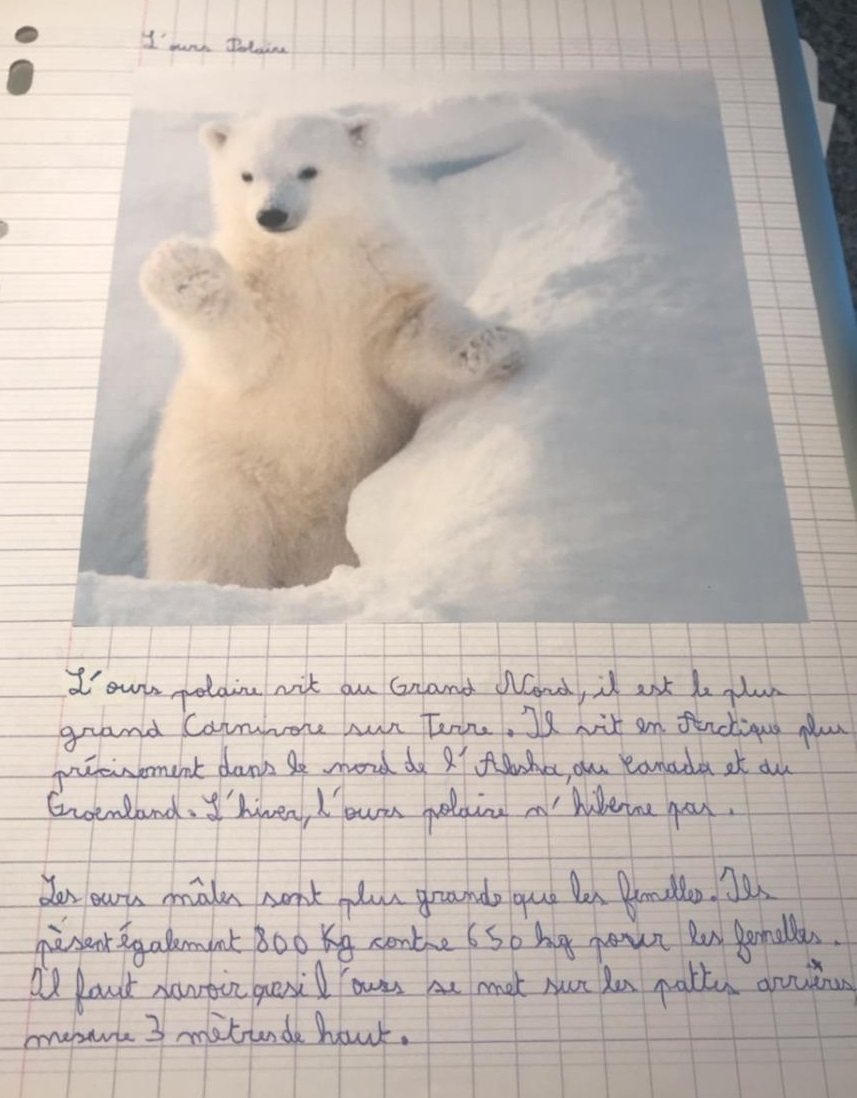 L'ours Polaire
L'ours polaire vit au Grand Nord, il est le plus
grand Carnivore sur Terre. Il vit en Arctique plus
précisement dans le nord de l'Alaska, au Canada et au
Groenland. L'hiver, l'ours polaire n'hiberne pas.
Les ours mâles sont plus grands que les femelles. Ils
pèsent également 800 Kg contre 650 kg pour les femelles.
Il faut savoir que si l'ours se met sur les pattes arrières
mesure 3 mètres de haut.